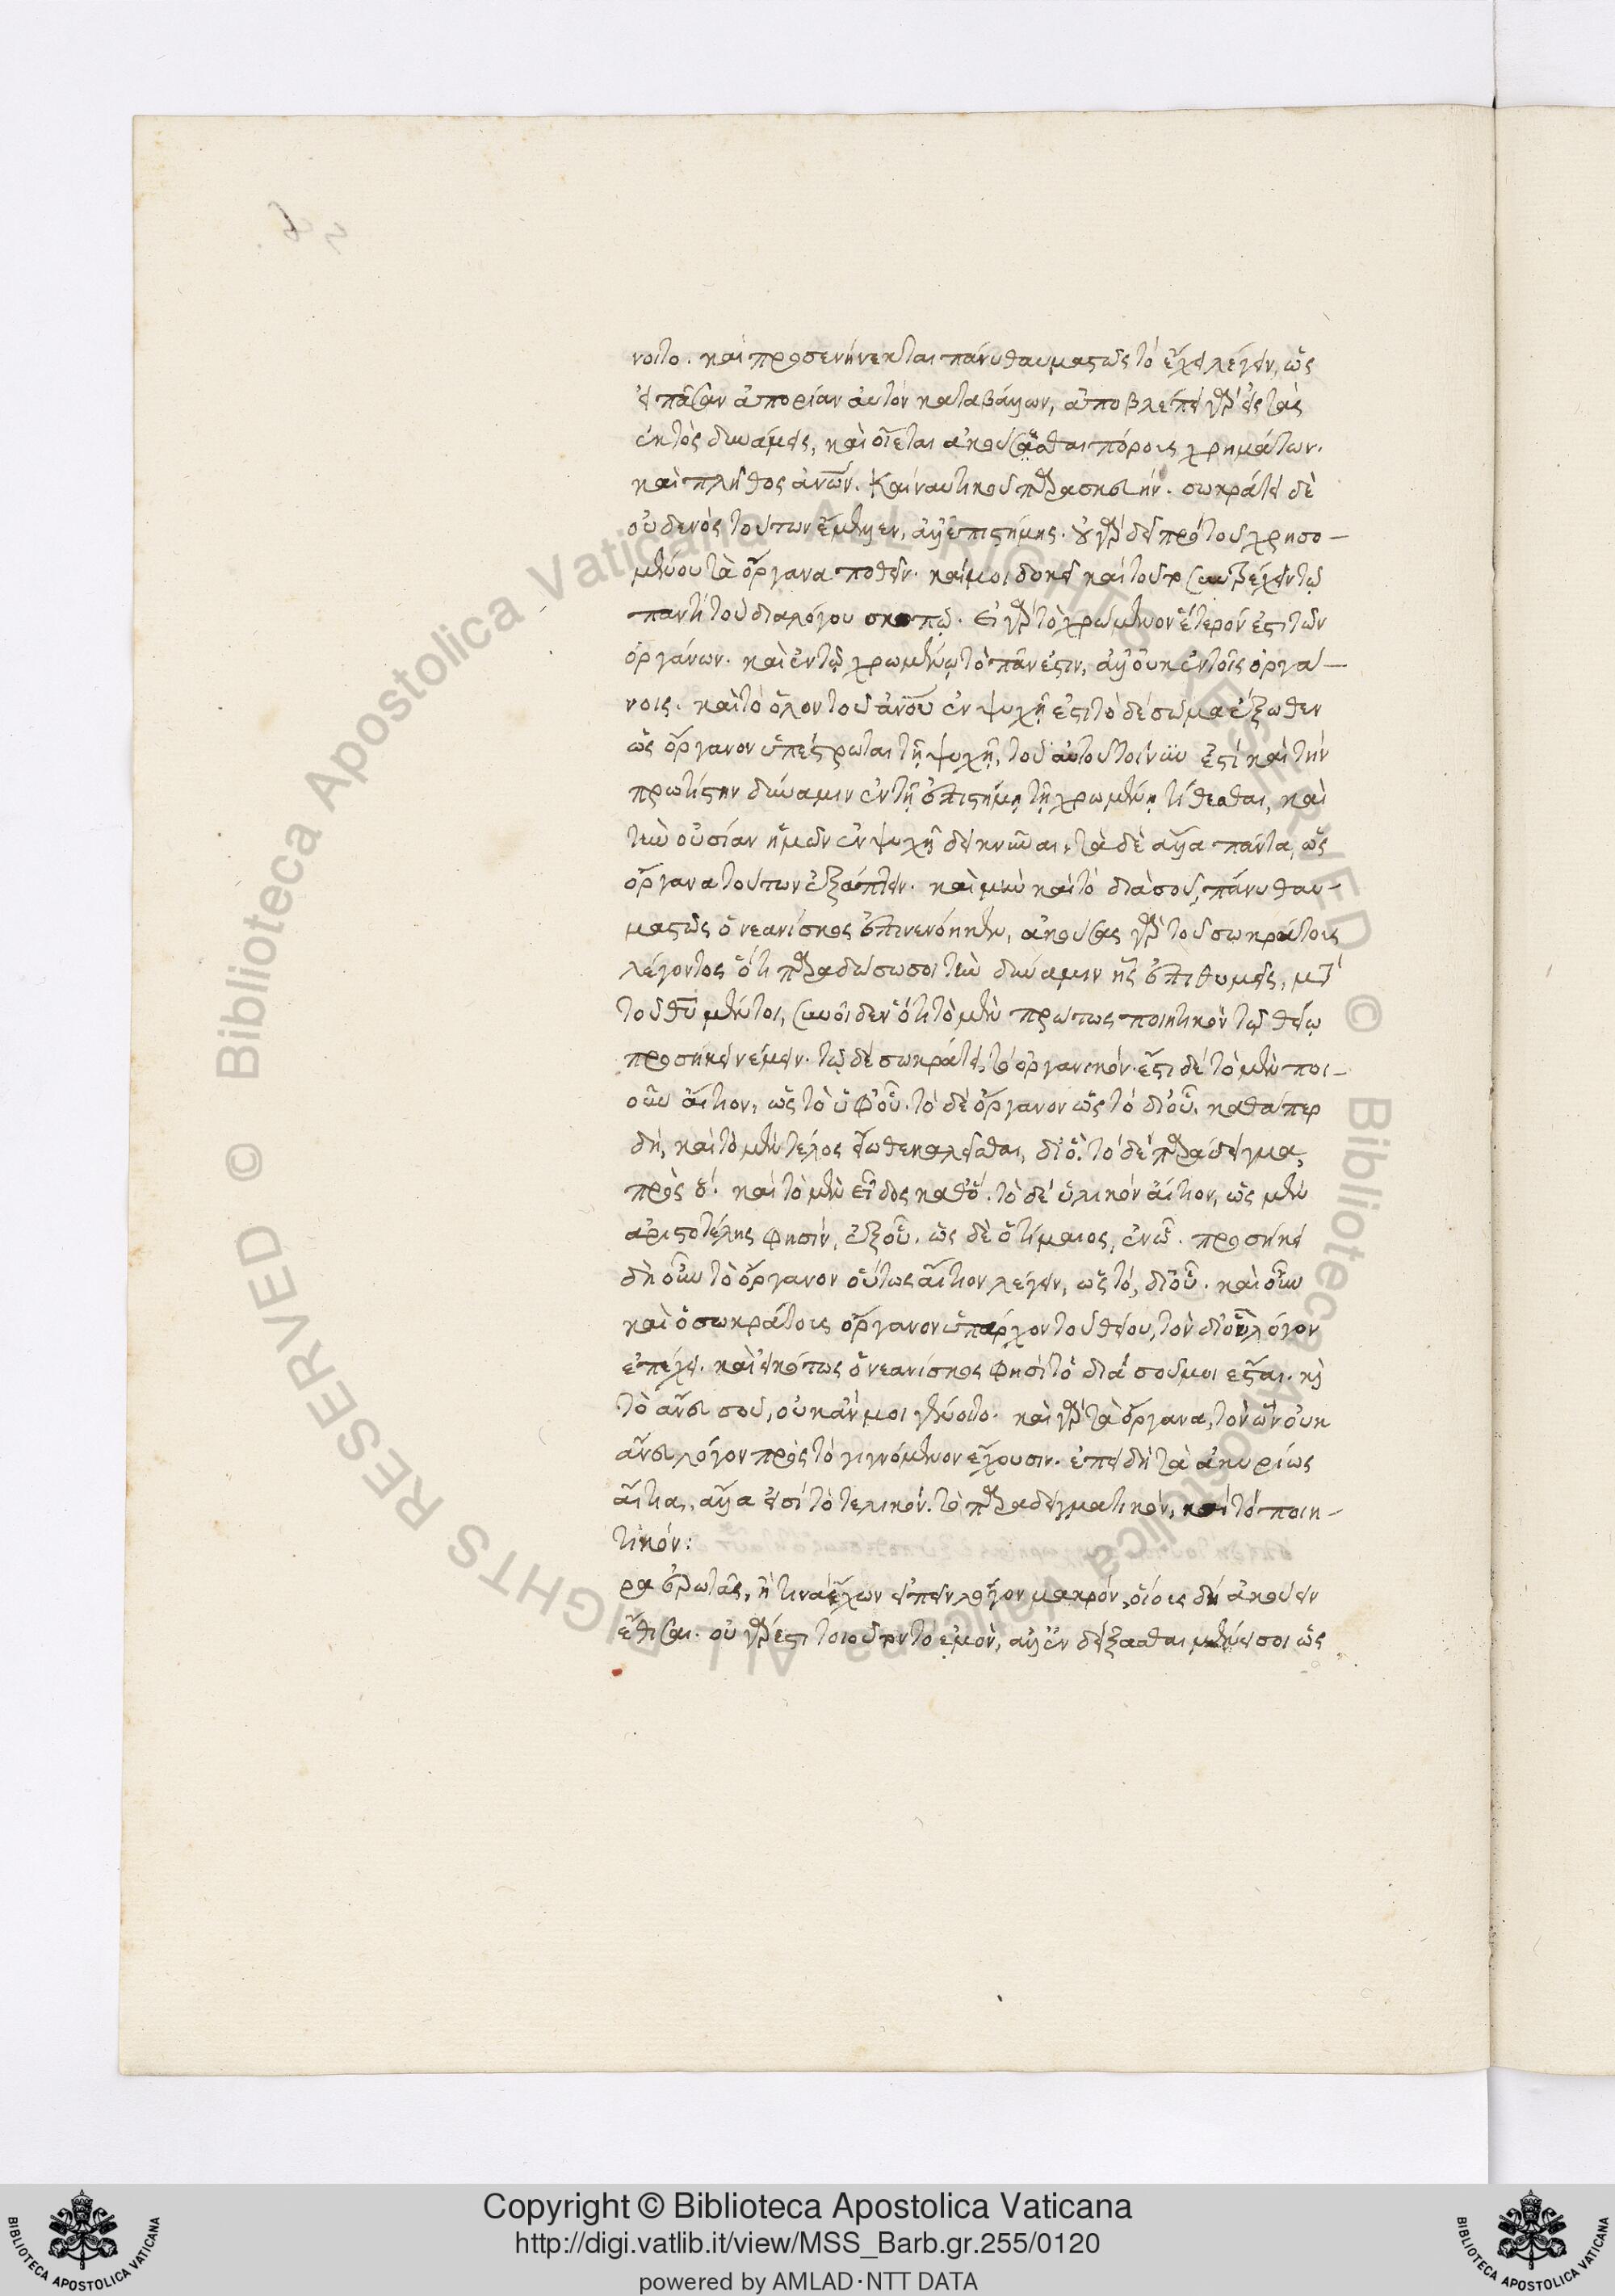 νοιτο. καὶ προσενήνεκται πάνυ θαυμαστῶς τὸ ἔχει λέγειν, ὡς
εἰ πᾶσαν ἀπορίαν αὐτὸν καταβάλλων, ἀποβλέπει γὰρ εἰς τὰς
ἐκτὸς δυνάμεις, καὶ οἴεται ἀκούσασθαι πόρους χρημάτων.
καὶ πλῆθος ἀνῶν. καὶ ναυτικοῦ παρασκευήν. σωκράτει δὲ
οὐδενὸς τούτων ἔμελλεν, ἀλλ' ἐπιστήμης. οὐ γὰρ δεῖ πρὸ τοῦ χρησο-
μένου τὰ ὄργανα ποθεῖν. καί μοι δοκεῖ καὶ τοῦτο συντρέχειν τῷ
παντὶ τοῦ διαλόγου σκοπῷ. εἰ γὰρ τὸ χρώμενον ἕτερόν ἐστι τῶν
ὀργάνων. καὶ ἐν τῷ χρωμένῳ τὸ πᾶν ἐστιν, ἀλλ' οὐκ ἐν τοῖς ὀργά-
νοις. καὶ τὸ ὅλον τοῦ ἀνοῦ ἐν ψυχῇ ἐστι τὸ δὲ σῶμα ἔξωθεν
ὡς ὄργανον ὑπέστρωται τῇ ψυχῇ, τοῦ αὐτοῦ τοίνυν ἐστὶ καὶ τὴν
πρωτίστην δύναμιν ἐν τῇ ἐπιστήμῃ τῇ χρωμένῃ τίθεσθαι, καὶ
τὴν οὐσίαν ἡμῶν ἐν ψυχῇ δεικνῦναι, τὰ δὲ ἄλλα πάντα, ὡς
ὄργανα τούτων ἐξάπτειν. καὶ μὴν καὶ τὸ διὰ σοῦ, πάνυ θαυ-
μαστῶς ὁ νεανίσκος ἐπινενόηκεν, ἀκούσας γὰρ τοῦ σωκράτους
λέγοντος ὅτι παραδώσω σοι τὴν δύναμιν ἧς ἐπιθυμεῖς, μετὰ
τοῦ θυ μέντοι, συνοῖδεν ὅτι τὸ μὲν πρώτως ποιητικὸν τῷ θεῷ
προσήκει νέμειν. τῷ δὲ σωκράτει, τὸ ὀργανικόν. ἔστι δὲ τὸ μὲν ποι-
οῦν αἴτιον, ὡς τὸ ὑφ' οὗ. τὸ δὲ ὄργανον ὡς τὸ δι' οὗ. καθάπερ
δὴ, καὶ τὸ μὲν τέλος εἴωθε καλεῖσθαι, δι' ὅ. τὸ δὲ παράδειγμα,
πρὸς ὅ. καὶ τὸ μὲν εἶδος καθ' ὅ. τὸ δὲ ὑλικὸν αἴτιον, ὡς μὲν
ἀριστοτέλης φησίν, ἐξ οὗ. ὡς δὲ ὁ τίμαιος, ἐν ᾧ. προσήκει
δὴ οὖν τὸ ὄργανον οὕτως αἴτιον λέγειν, ὡς τὸ, δι' οὗ. καὶ οὖν
καὶ ὁ σωκράτους ὄργανον ὑπάρχον τοῦ θείου, τὸν δι' οὗ λόγον
ἐπέχει. καὶ εἰκότως ὁ νεανίσκος φησὶ τὸ διὰ σοῦ μοι ἔσται. καὶ
τὸ ἄνευ σοῦ, οὐκ ἄν μοι γένοιτο. καὶ γὰρ τὰ ὄργανα, τὸν ὧν οὐκ
ἄνευ λόγον πρὸς τὸ γιγνόμενον ἔχουσιν. ἐπειδὴ τὰ ἀκυρίως
αἴτια, ἄλλα εἰσὶ τὸ τελικόν. τὸ παραδειγματικόν, καὶ τὸ ποιη-
τικόν:
ρα ἐρωτᾷς, ἥ τινα ἔχων εἰπεῖν λόγον μακρόν, οἵους δὴ ἀκούειν
εἴθισαι. οὐ γάρ ἐστι τοιοῦτον τὸ ἐμὸν, ἀλλ' ἐν δείξασθαι μὲν σοι ὡς